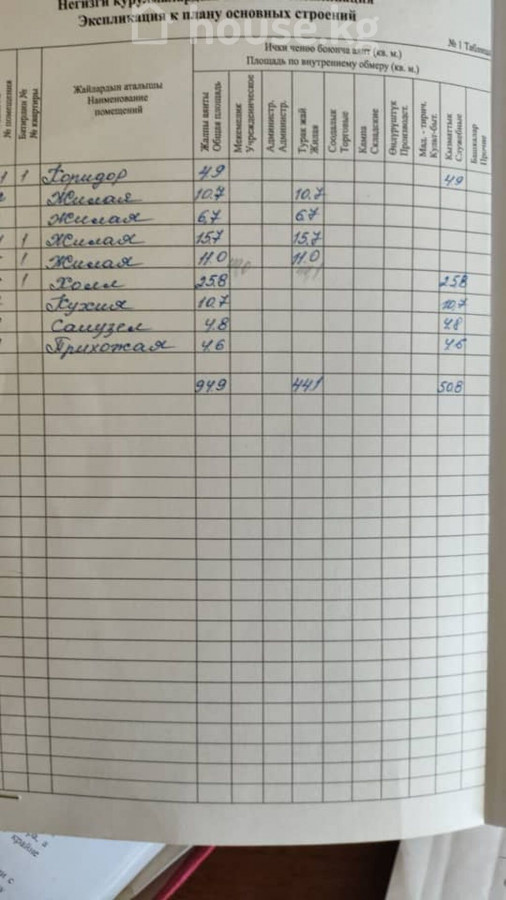 house.kg
Экспликация к плану основных строений
№ 1 Таблица
Ички ченөө боюнча аянт (кв. м.)
Площадь по внутреннему обмеру (кв. м.)
№ помещения
Батирдин №
№ квартиры
Жайлардын аталышы
Наименование
помещений
Жалпы аянты
Общая площадь
Мекемелик
Учрежденическое
Администр.
Администр.
Турак жай
Жилая
Соодалык
Торговые
Кампа
Складские
Өндүрүштүк
Производст.
Мад. - тирич.
Культ-быт.
Кызматтык
Служебные
Башкалар
Прочие
1 1 Коридор 4.9 4.9
Жилая 10.7 10.7
Жилая 6.7 6.7
1 Жилая 15.7 15.7
1 Жилая 11.0 11.0
1 Холл 25.8 25.8
Кухня 10.7 10.7
Санузел 4.8 4.8
Прихожая 4.6 4.6
94.9 44.1 50.8
крайне